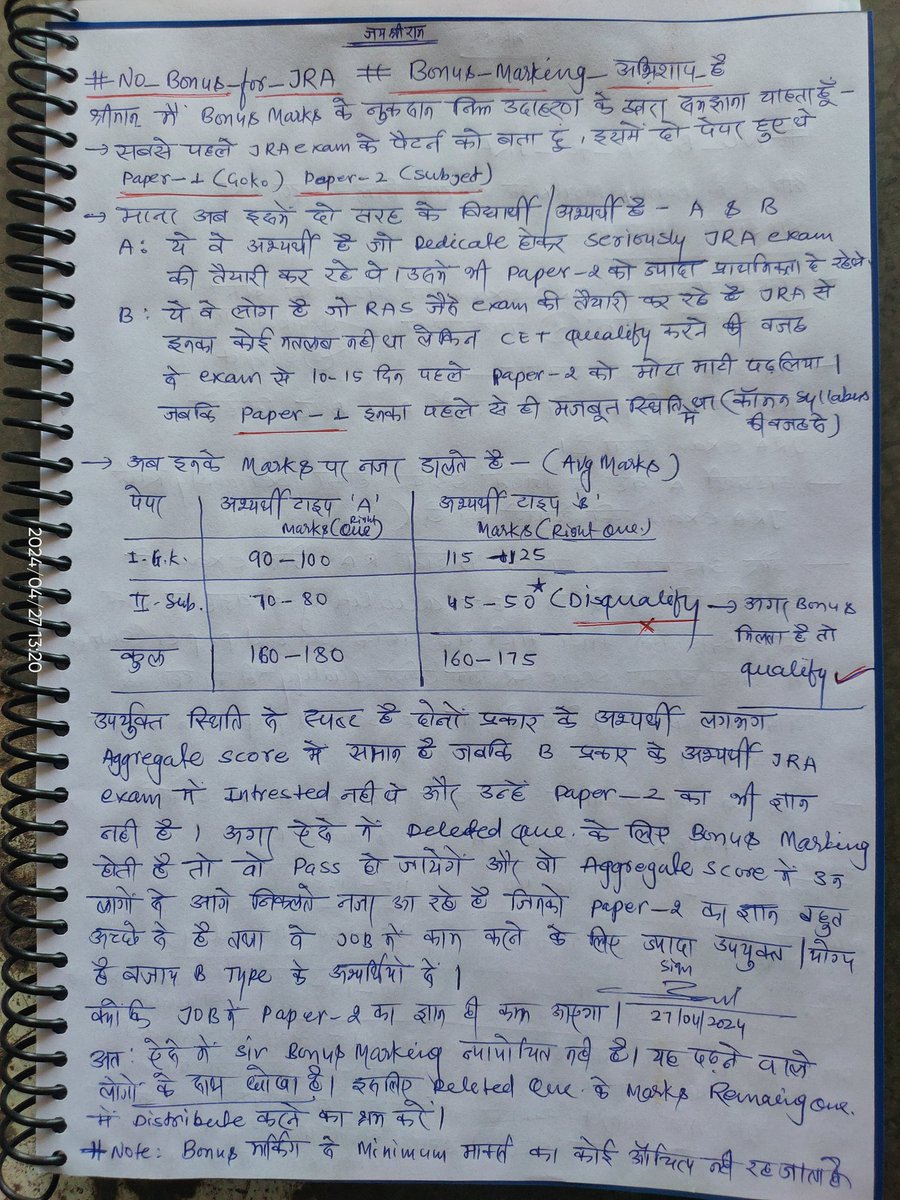 जय श्री राम
# No_Bonus_for_JRA # Bonus_Marking_अभिशाप_है
श्रीमान मैं Bonus Marks के नुकसान निम्न उदाहरण के द्वारा समझाना चाहता हूँ -
→ सबसे पहले JRA exam के पैटर्न को बता दूं, इसमें दो पेपर हुए थे
Paper-1 (Gk) Paper-2 (Subjet)
→ माना अब इसमें दो तरह के विद्यार्थी/अभ्यर्थी है - A & B
A: ये वे अभ्यर्थी है जो Dedicate होकर seriously JRA exam
की तैयारी कर रहे थे। उसमें भी Paper-2 को ज्यादा प्राथमिकता दे रहे थे.
B: ये वे लोग है जो RAS जैसे exam की तैयारी कर रहे है JRA से
इनका कोई मतलब नही था लेकिन CET Qualify करने की वजह
से exam से 10-15 दिन पहले Paper-2 को मोटा माटी पढ़ लिया।
जबकि Paper-1 इनका पहले से ही मजबूत स्थिति में था (कॉमन Syllabus
की वजह से)
→ अब इनके Marks पर नजर डालते है - (Avg Marks)
पेपर अभ्यर्थी टाइप 'A' अभ्यर्थी टाइप 'B'
Marks (Right Que) Marks (Right Que.)
I-G.K. 90-100 115-125
II-Sub. 70-80 45-50* (Disqualify → अगर Bonus
मिलता है तो
कुल 160-180 160-175
qualify ✓
उपर्युक्त स्थिति से स्पष्ट है दोनों प्रकार के अभ्यर्थी लगभग
Aggregate score में समान है जबकि B प्रकार के अभ्यर्थी JRA
exam में Intrested नही थे और उन्हें Paper-2 का भी ज्ञान
नही है। अगर ऐसे में Deleted Que. के लिए Bonus Marking
होती है तो वो Pass हो जायेगें और वो Aggregate score में उन
लोगों से आगे निकलते नजर आ रहे है जिनको Paper-2 का ज्ञान बहुत
अच्छे से है तथा वे JOB में काम करने के लिए ज्यादा उपयुक्त/योग्य
है बजाय B Type के अभ्यर्थियो से।
Sign
क्योंकि JOB में Paper-2 का ज्ञान ही काम आएगा।
27/04/2024
अतः ऐसे में Sir Bonus Marking न्यायोचित नही है। यह पढ़ने वाले
लोगों के साथ धोखा है। इसलिए Deleted Que. के Marks Remaing Que.
में Distribute करने का श्रम करें।
# Note: Bonus मार्किंग से Minimum मार्क्स का कोई औचित्य नही रह जाता है
2024/04/27 13:20